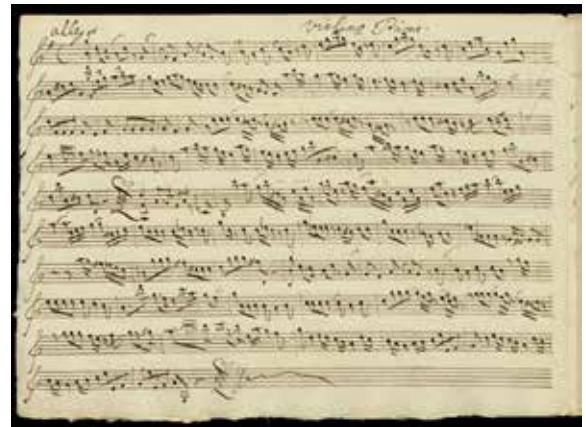 allegro violino Primo.